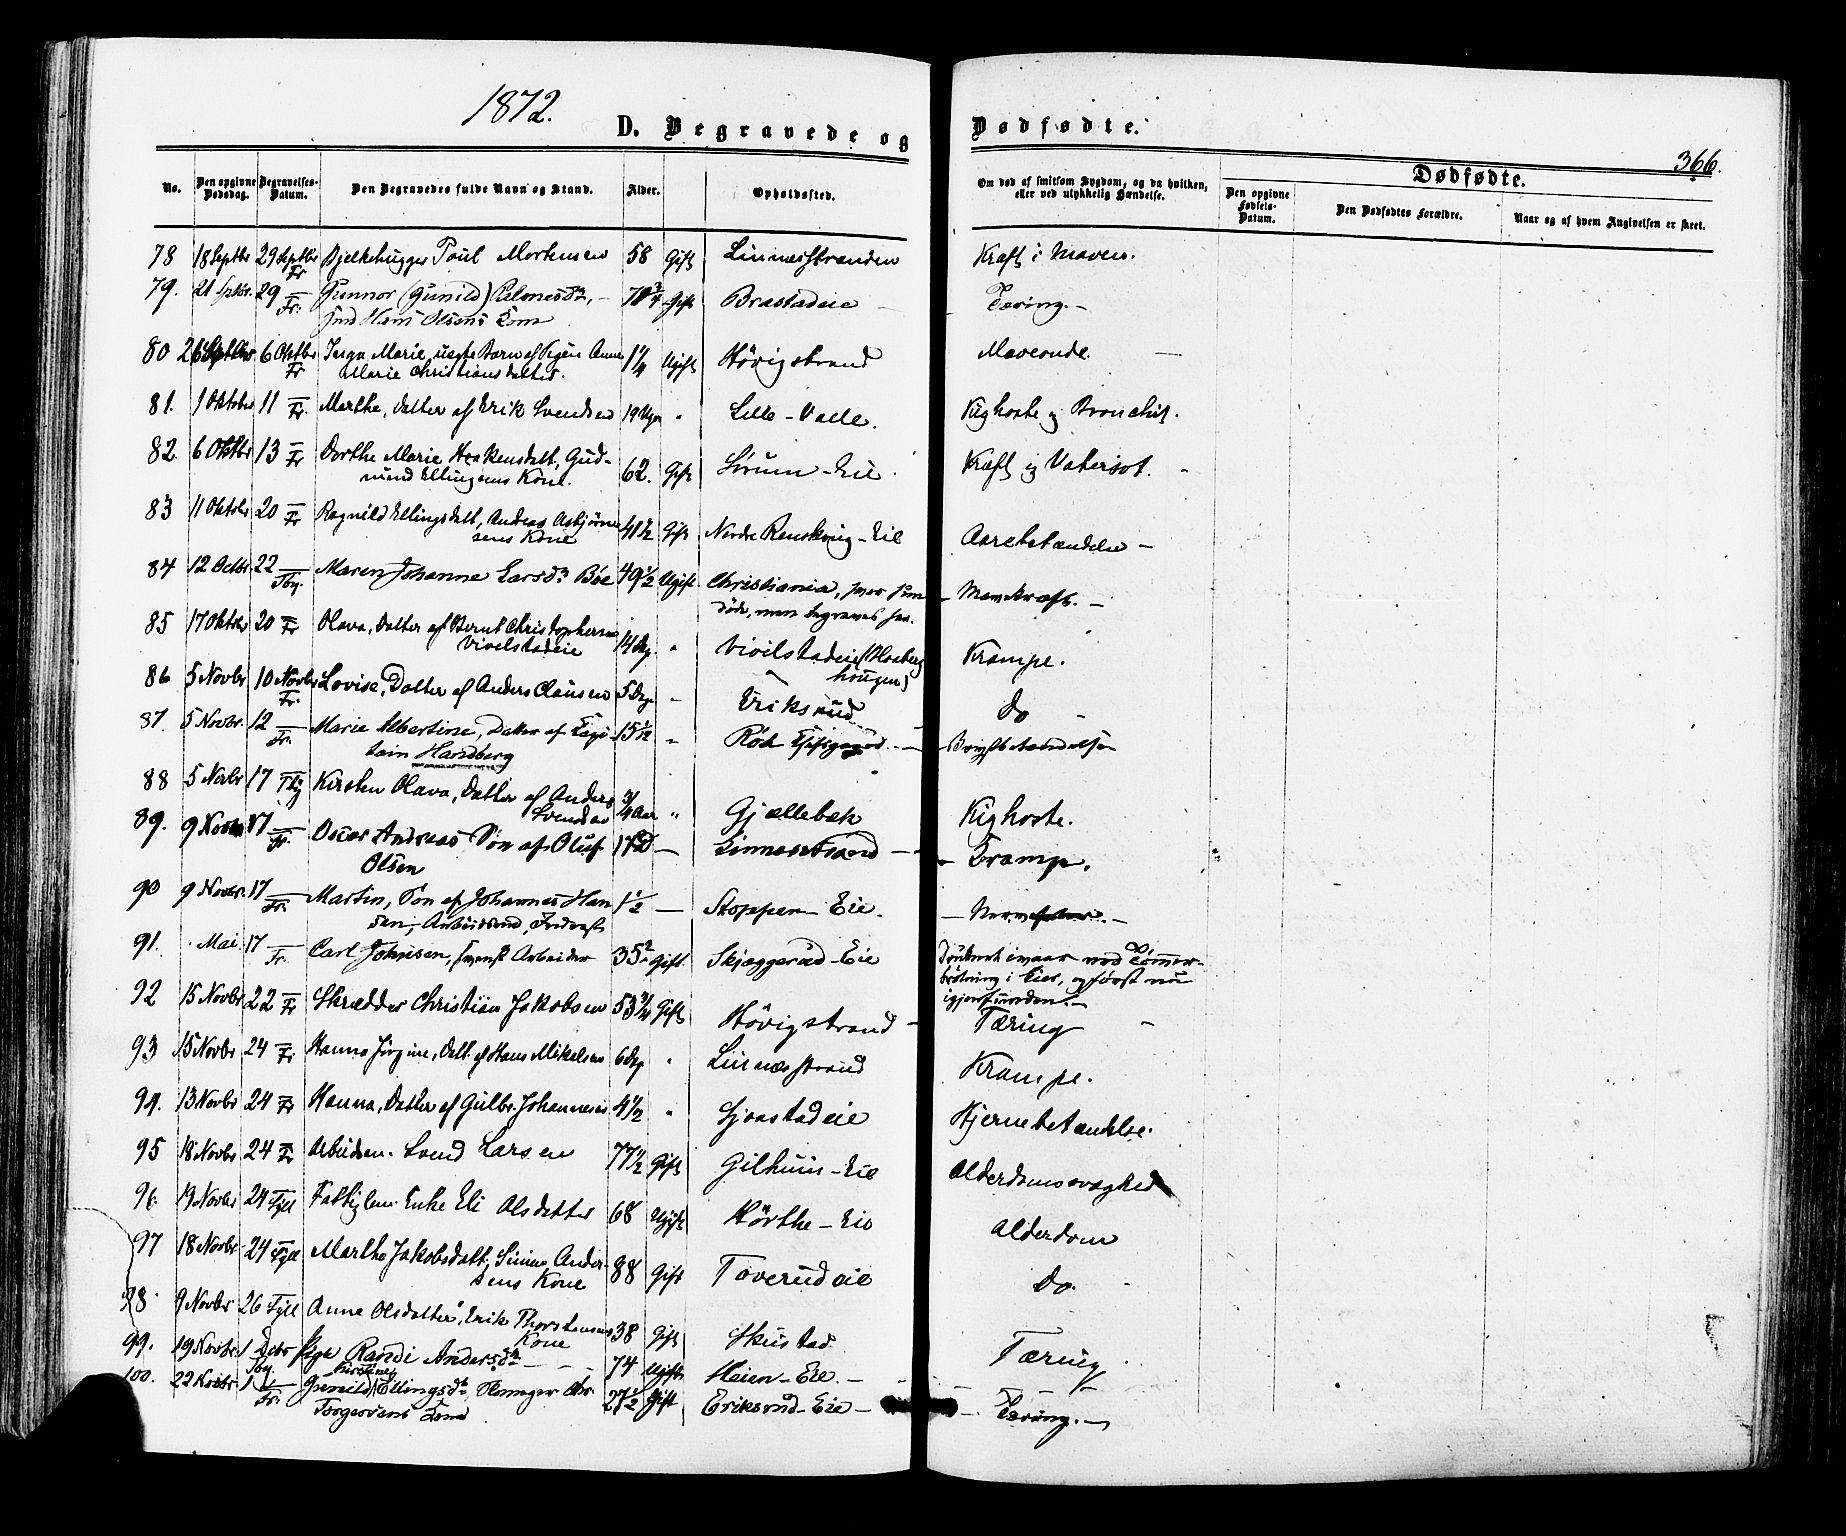 1872.
D. Begravede og Dødfødte.
366.
No. Den opgivne Dødsdag. Begravelses-Datum. Den Begravedes fulde Navn og Stand. Alder. Opholdssted. Om død af smitsom Sygdom, og da hvilken, eller ved ulykkelig Hændelse. Dødfødte.
Den opgivne Fødsels-Datum. Den Dødfødtes Forældre. Naar og af hvem Angivelsen er skeet.
78 18 Septbr 29 Septbr Fr Bjelkehugger Poul Mortensen 58 Gift Linnesstranden Kræft i Maven.
79. 21 Septbr. 29 — Fr. Gunnor (Gunild) — 70 3/4 Gift Brastadeie — Tæring. —
Hans Olsens Kone
80 26 Septbr 6 Oktbr Fr Inga Marie, uegte Barn af Pigen Anne 1 1/4 Ugift Høvigstrand Maveonde. —
Marie Christiansdatter.
81. 1 Oktober 11 — Fr. Marthe, Datter af Erik Svendsen 19 Uger " Lille-Valle. Kighoste og Bronchit.
82. 6 Oktbr 13 — Fr Dorthe Marie Haakensdatt, Gud- 62. Gift Sørum-Eie. Kræft og Vatersot.
mund Ellingsens Kone.
83 11 Oktobr 20 — Fr Ragnild Ellingsdatt, Andreas Asbjørn- 41 1/2 Gift Nordre Renskoug-Eie Aarebetændelse —
sens Kone
84 12 Octbr. 22 — Tby. Maren Johanne Larsdr Bøe 49 1/2 Ugift. Christiania, hvor hun — Mavekræft. —
døde, men begraves her.
85 17 Oktbr 20 — Fr Olava, Datter af Bernt Christophersen 14 Dg. " Vivelstadeie (Haaberg Krampe.
Vivelstadeie hougen)
86 5 Novbr 10 Novbr Fr. Lovise, Datter af Anders Clausen 5 Dg. — Eriksrud Do —
87. 5 Novbr. 12 — Fr. Marie Albertine, Datter af Capi- 15 1/2 " Rød — Brystbetændelse
tain Handberg
88 5 Novbr 17 Tby Kirsten Olava, Datter af Anders 3/4 Aar " Gjællebæk Kighoste.
Svendsen
89. 9 Novbr 17 — Fr. Oscar Andreas Søn af Oluf 17 D — Linnesstrand — — Krampe.
Olsen
90 9 Novbr. 17 — Fr. Martin, Søn af Johannes Han 1 1/2 — Stoppen-Eie. —
sen, Arbeidsmd,
91. Mai 17 — Fr. Carl Johnsen, svensk Arbeider 35 Gift. Skjæggerud-Eie Druknet ivaar ved Tømmer-
brøtning i Eier, og først nu
igjenfunden. —
92 15 Novbr 22 — Fr Skrædder Christian Jakobsen 53 3/4 Gift Høvigstrand — Tæring —
93 15 Novbr 24 — Fr. Hanna Jørgine, Datt. af Hans Mikelsen 6 Dg " Linnesstrand Krampe.
94. 13 Novbr 24 — Fr Hanna, Datter af Gulbr. Johannesen 4 1/2 " Gjaastadeie Hjernebetændelse.
95 18 Novbr 24 — Fr Arbeidsm. Svend Larsen 77 1/2 Gift Gilhuus-Eie Alderdomssvaghed
96. 19 Novbr 24 Fyll Fattiglem Enke Eli Olsdatter 68 Ugift Hørthe-Eie Alderdom
97 18 Novbr. 24 Fyll Marthe Jakobsdatt, Simen Ander- 88 Gift Toverudeie Do. —
sens Kone
98. 9 Novbr 26 Fyll Anne Olsdatter, Erik Thorstensens 38 Gift Skustad Tæring
Kone
99. 19 Novbr. 1 Decbr Tby. Pige Randi Andersdr — — — 74 Ugift Heien-Eie. — — "
100. 22 Novbr 1 — Fr. Gunild (Kirstine) Ellingsdr 27 1/2 Gift Eriksrud-Eie — — Tæring. —
Torgersens Kone